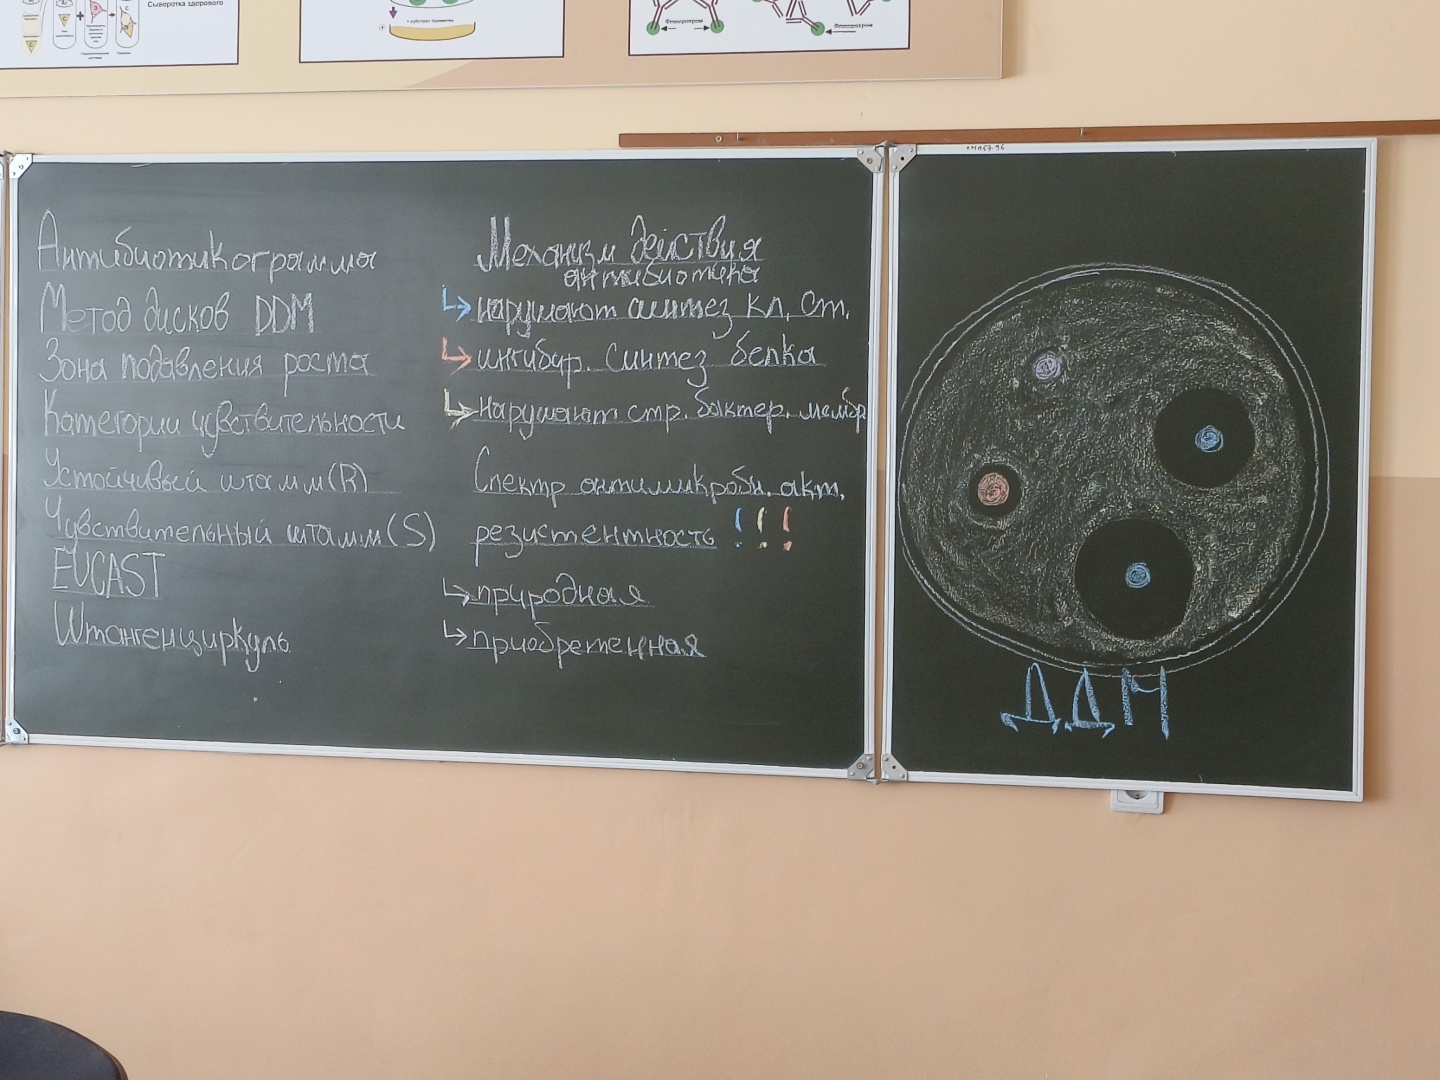 Сыворотка здорового
с субстрат пероксидазы
Флюорохром
Флюорохром
Антибиотикограмма
Метод дисков DDM
Зона подавления роста
Категории чувствительности
Устойчивый штамм(R)
Чувствительный штамм(S)
EUCAST
Штангенциркуль
Механизм действия
антибиотика
↳нарушают синтез кл. ст.
↳ингибир. синтез белка
↳нарушают стр. бактер. мембр
Спектр антимикробн. акт.
резистентность !!!
↳природная
↳приобретенная
ДДМ